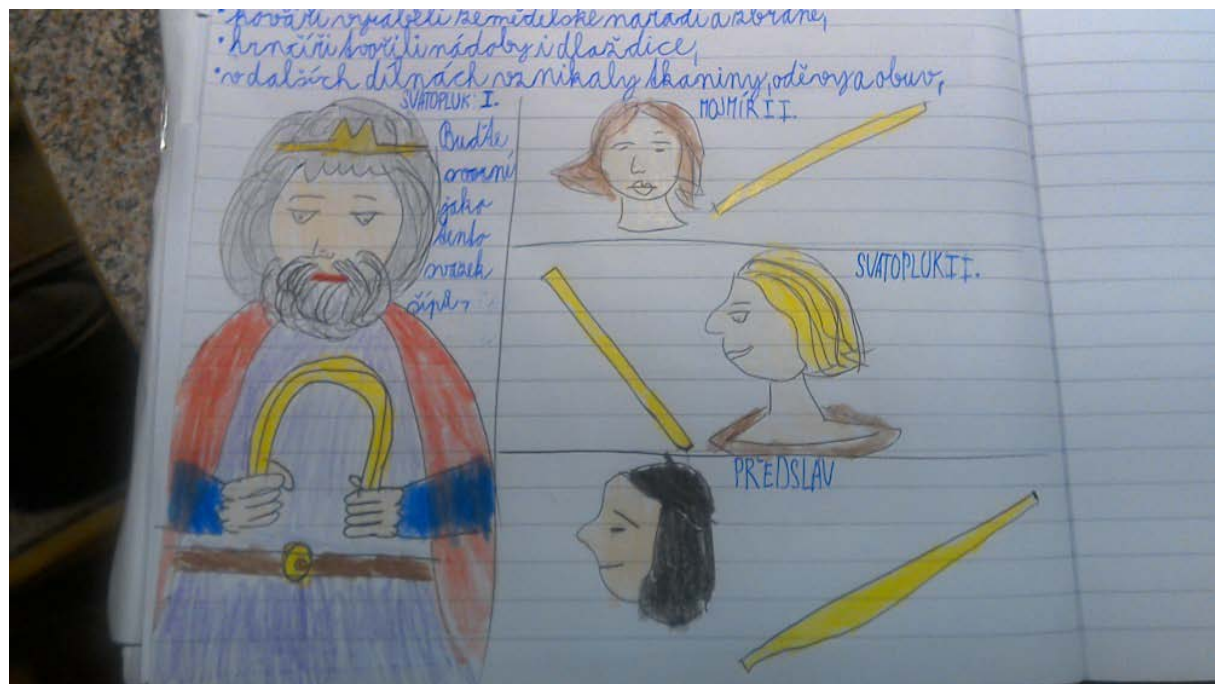 • kováři vyráběli zemědělské nářadí a zbraně,
• hrnčíři tvořili nádoby i dlaždice,
• v dalších dílnách vznikaly tkaniny, oděvy a obuv,
SVATOPLUK I.
Buďte
svorní
jako
tento
svazek
šípů,
MOJMÍR II.
SVATOPLUK II.
PŘEDSLAV